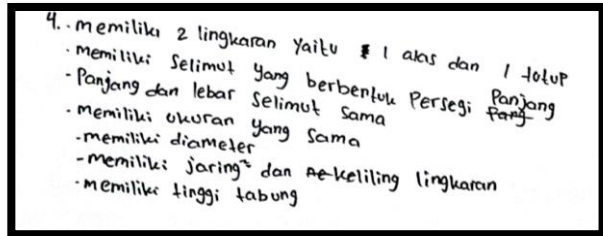 4. - memiliki 2 lingkaran yaitu 1 alas dan 1 tutup
- memiliki selimut yang berbentuk persegi panjang
- Panjang dan lebar selimut sama
- memiliki ukuran yang sama
- memiliki diameter
- memiliki jaring² dan keliling lingkaran
- memiliki tinggi tabung